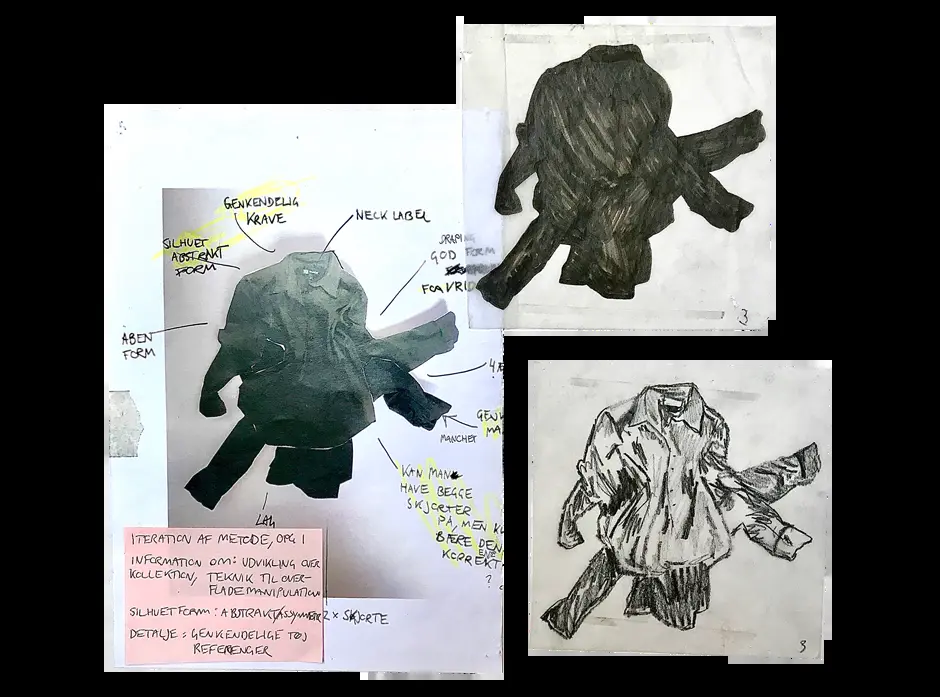 GENKENDELIG
KRAVE
NECK LABEL
SILHUET
ABSTRAKT
FORM
DRAPING
GOD FORM
FORVRID
ÅBEN
FORM
4
GENK
MA
MANCHET
KAN MAN
HAVE BEGGE
SKJORTER
PÅ, MEN KU
BÆRE DEN
ENE
KORREKT
?
LAG
ITERATION AF METODE, OPG 1
INFORMATION OM: UDVIKLING OVER
KOLLEKTION, TEKNIK TIL OVER-
FLADEMANIPULATION
SILHUET FORM: ABSTRAKT/ASSYMETR 2 x SKJORTE
DETALJE: GENKENDELIGE TØJ
REFERENGER
3
3